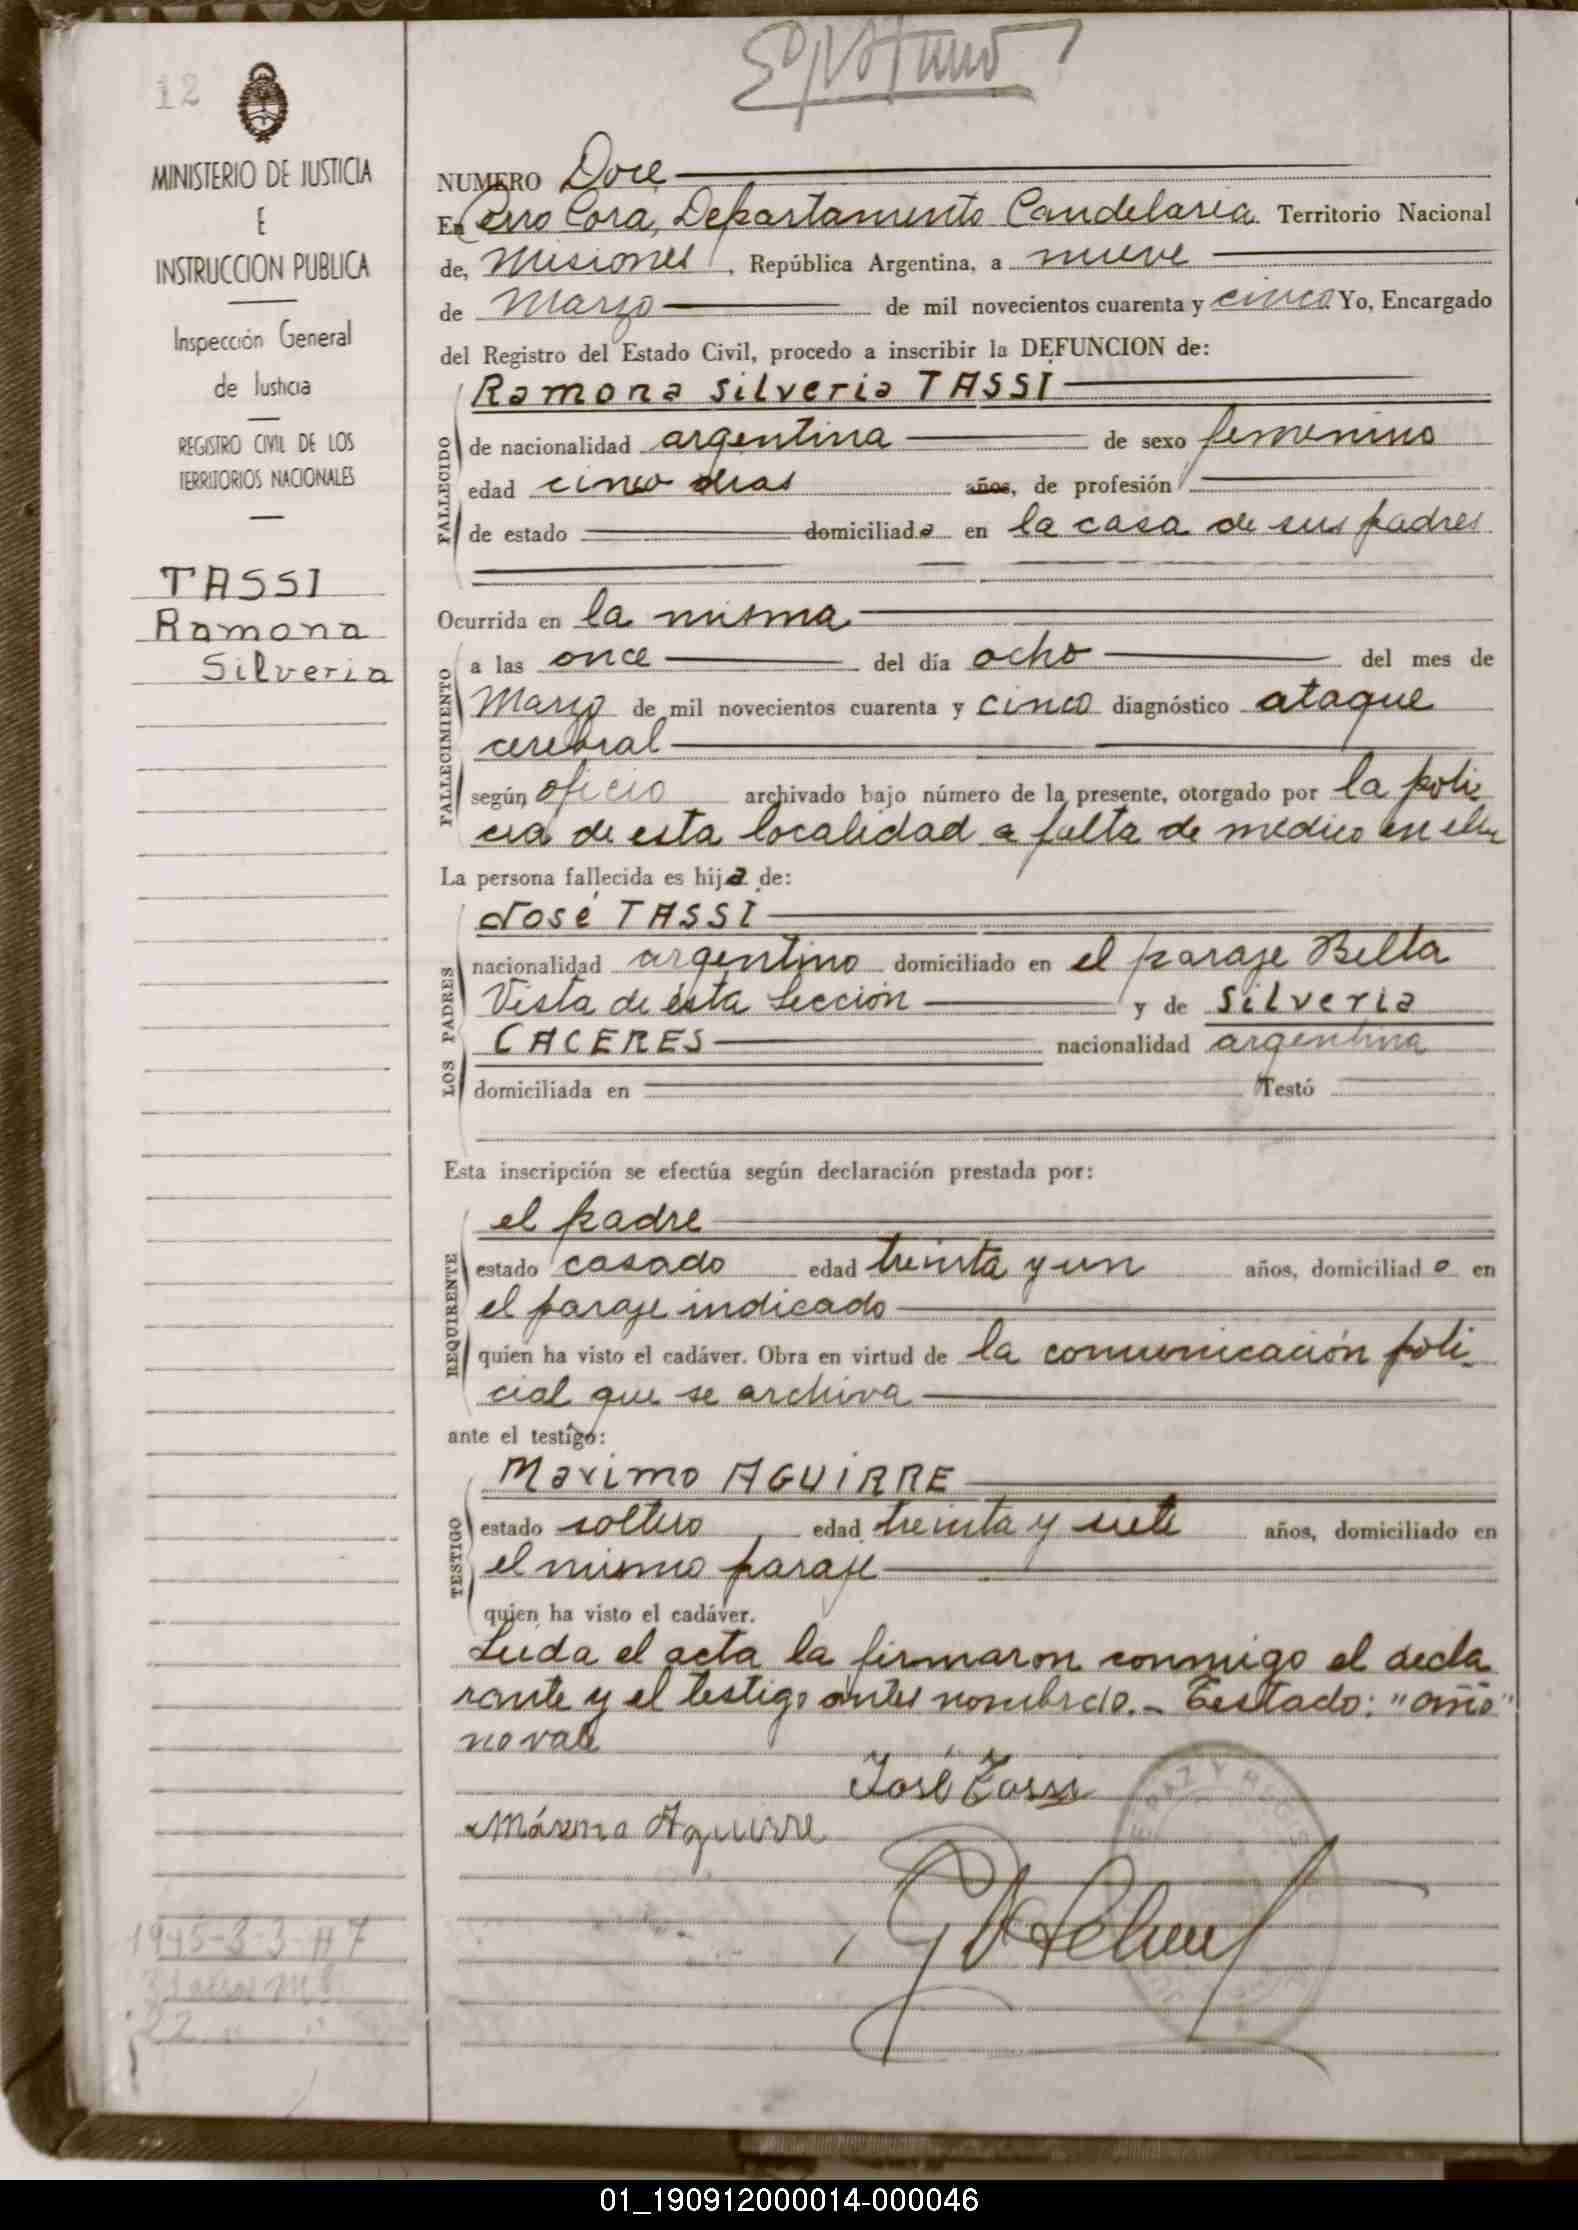 12
MINISTERIO DE JUSTICIA
E
INSTRUCCION PUBLICA
Inspección General
de Justicia
REGISTRO CIVIL DE LOS
TERRITORIOS NACIONALES
TASSI
Ramona
Silveria
NUMERO Doce
En Cerro Cora, Departamento Candelaria Territorio Nacional
de, Misiones, República Argentina, a nueve
de Marzo de mil novecientos cuarenta y cinco Yo, Encargado
del Registro del Estado Civil, procedo a inscribir la DEFUNCION de:
Ramona Silveria TASSI
FALLECIDO
de nacionalidad argentina de sexo femenino
edad cinco dias años, de profesión
de estado domiciliada en la casa de sus padres
Ocurrida en la misma
FALLECIMIENTO
a las once del día ocho del mes de
Marzo de mil novecientos cuarenta y cinco diagnóstico ataque
cerebral
según oficio archivado bajo número de la presente, otorgado por la poli
cia de esta localidad a falta de medico en ella
La persona fallecida es hija de:
LOS PADRES
José TASSI
nacionalidad argentino domiciliado en el paraje Bella
Vista de ésta Sección y de Silveria
CACERES nacionalidad argentina
domiciliada en Testó
Esta inscripción se efectúa según declaración prestada por:
REQUIRENTE
el padre
estado casado edad treinta y un años, domiciliado en
el paraje indicado
quien ha visto el cadáver. Obra en virtud de la comunicación poli-
cial que se archiva
ante el testigo:
TESTIGO
Maximo AGUIRRE
estado soltero edad treinta y siete años, domiciliado en
el mismo paraje
quien ha visto el cadáver.
Leida el acta la firmaron conmigo el decla
rante y el testigo antes nombrado.- Testado: "año"
no vale
José Tassi
Máximo Aguirre
1945-3-3-H 7
22
01_190912000014-000046